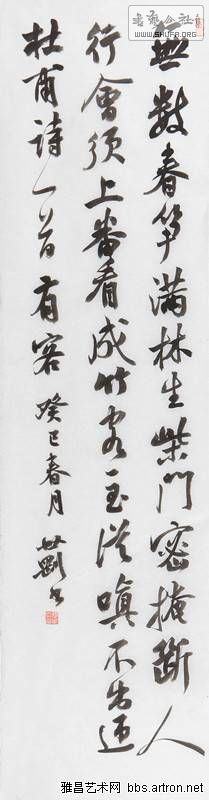 無数春笋满林生柴門密掩断人
行會须上番看成竹客至従嗔不出迎
杜甫詩一首 有客 癸巳春月 世剛书
书艺公社
WWW.SHUFA.ORG
雅昌艺术网 bbs.artron.net